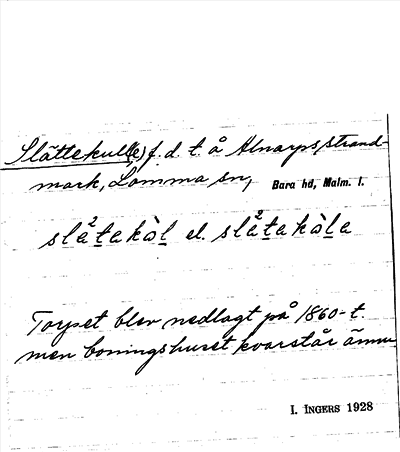 Slättekull(e) f. d. t. å Alnarps strand-
mark, Lomma sn, Bara hd, Malm. l.
slä²tekål el. slä²tekåla
Torpet blev nedlagt på 1860-t.
men boningshuset kvarstår ännu
I. INGERS 1928